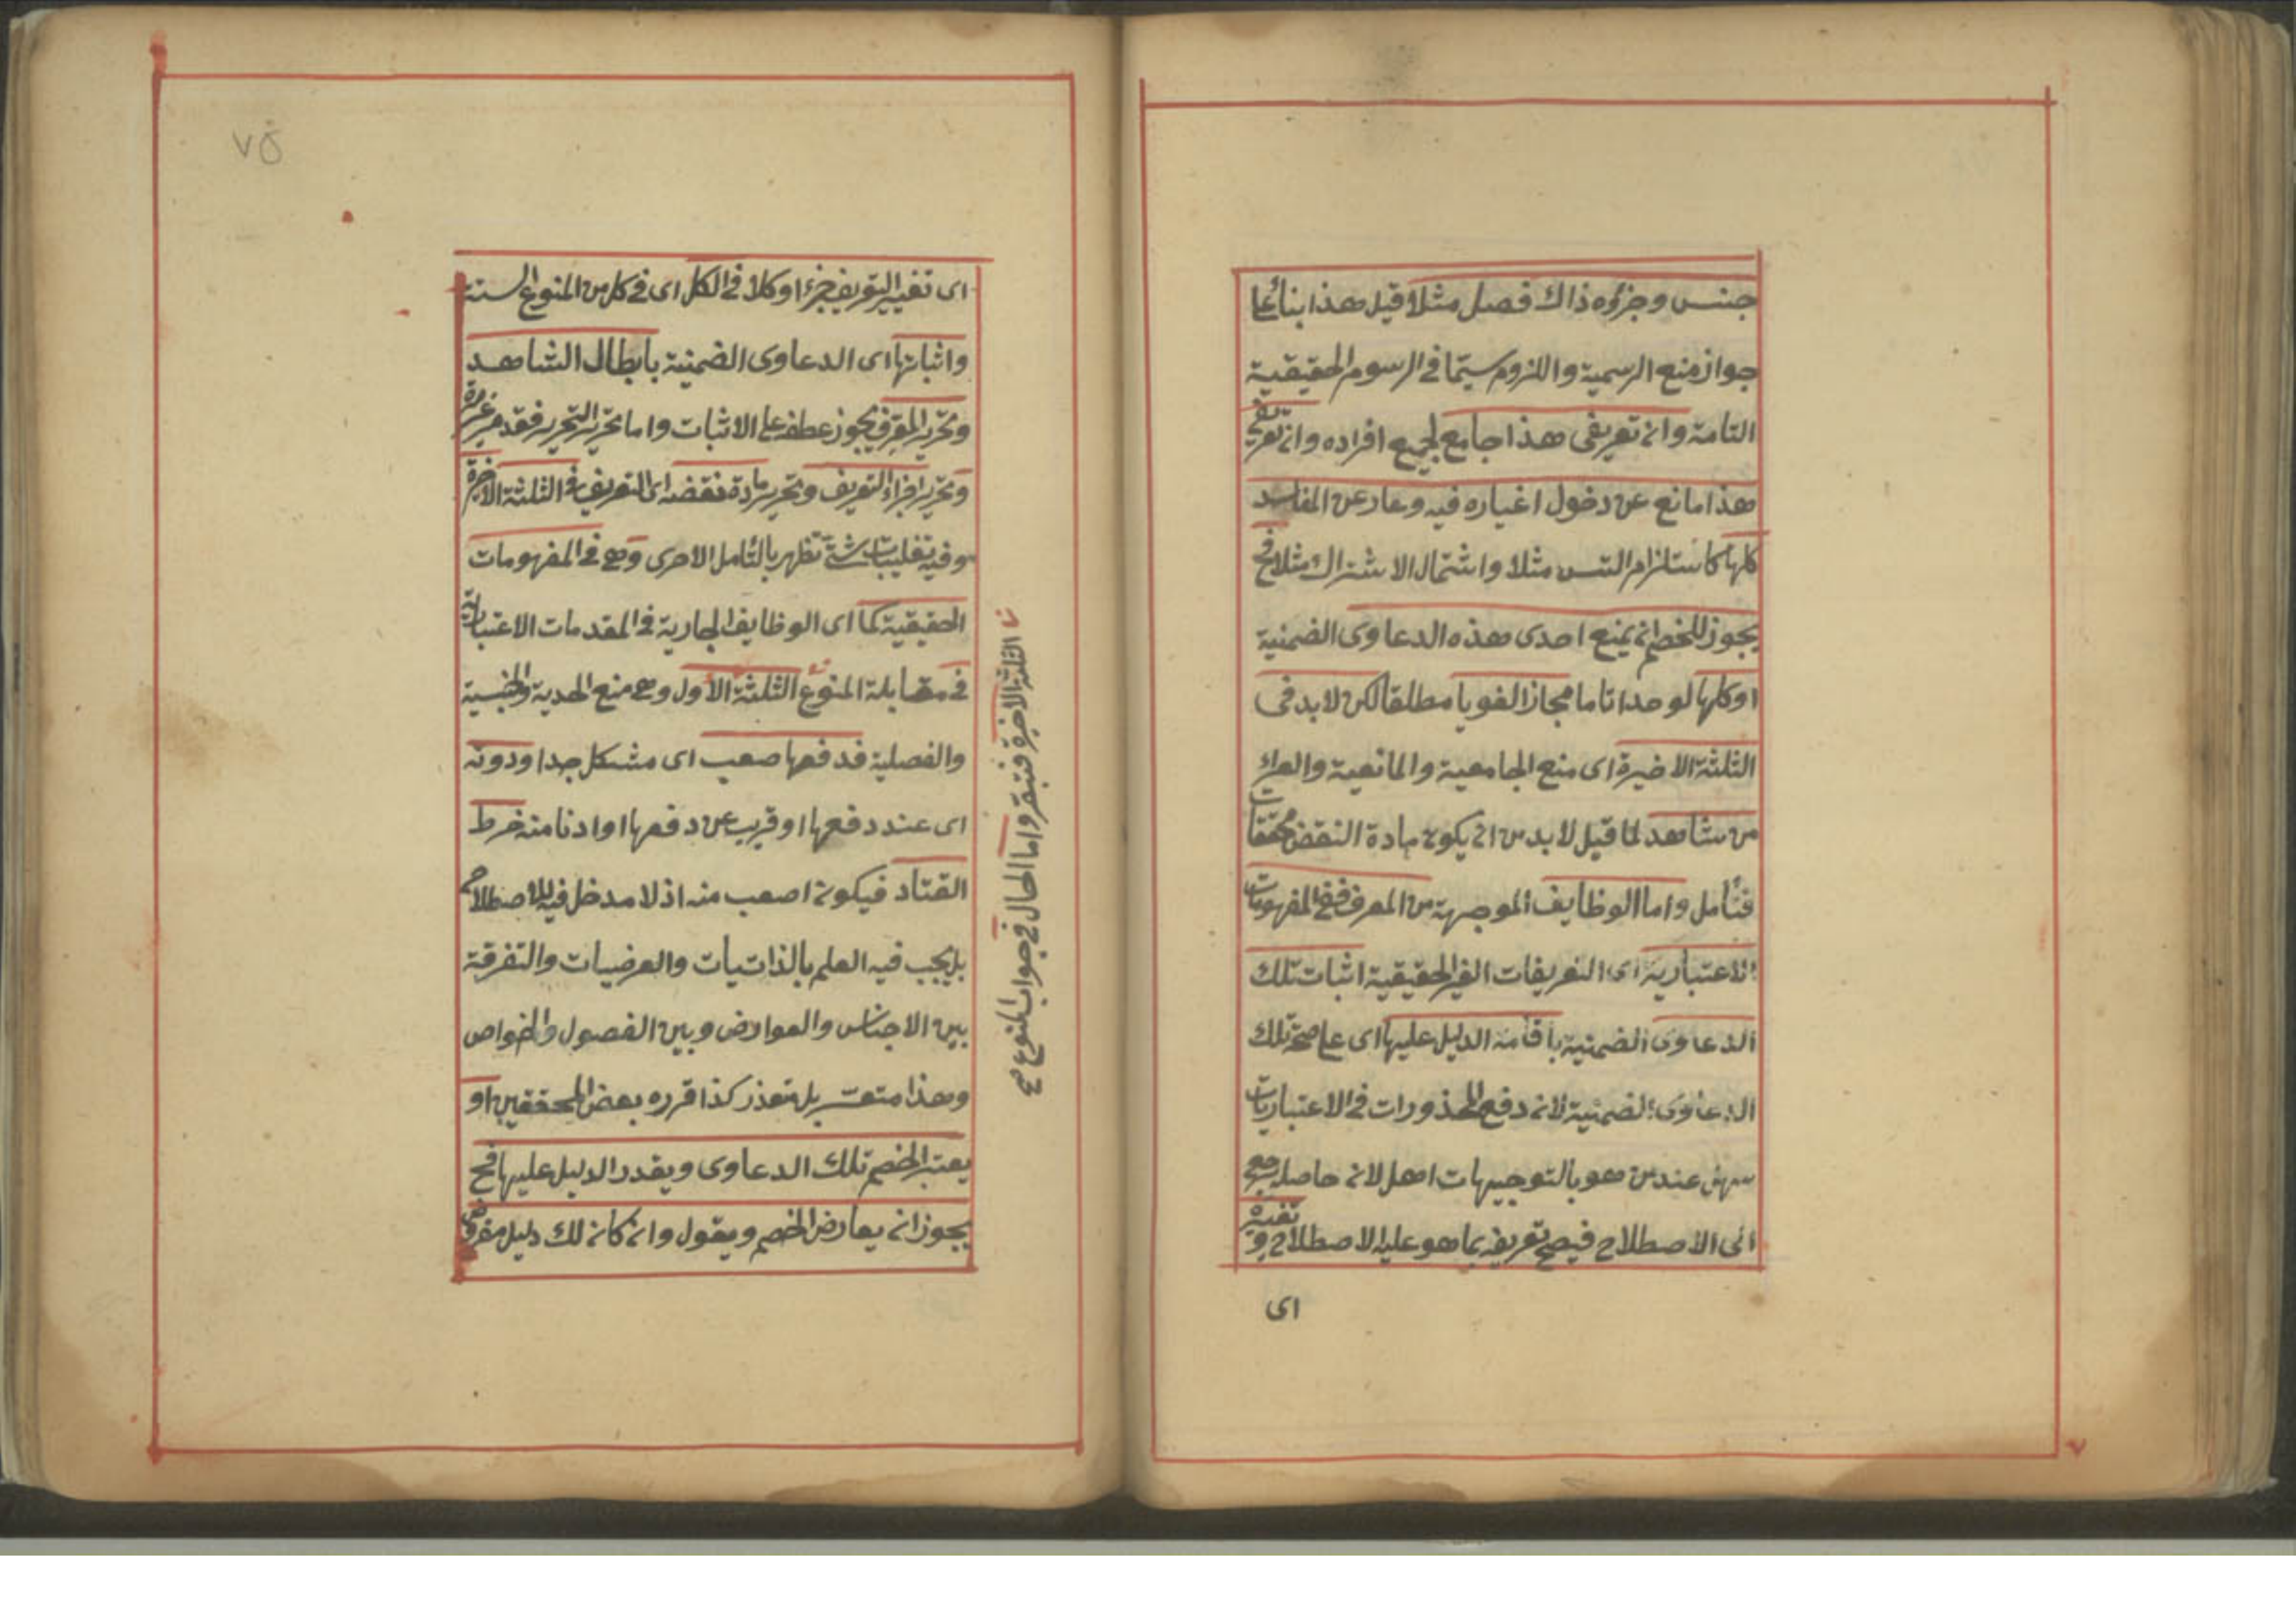 جنس وجزؤه ذاك فصل مثلا قيل هذا بناء على
جواز منع الرسمية واللزوم سيّما فى الرسوم الحقيقية
التامة وان تعريفى هذا جامع لجميع افراده وان تعريفى
هذا مانع عن دخول اغياره فيه وعار عن المفاسد
كلها كاستلزام التس مثلا واشتمال الاشتراك مثلا فح
يجوز للخصم ان يمنع احدى هذه الدعاوى الضمنية
او كلها لو حدا تاما مجازا لغويا مطلقا لكن لابد فى
الثلثة الاخيرة اى منع الجامعية والمانعية والعراء
من شاهد لما قيل لابد من ان يكون مادة النقض محققات
فتأمل واما الوظايف الموجهة من المعرف ففى المفهومات
الاعتبارية اى التعريفات الغير الحقيقية اثبات تلك
الدعاوى الضمنية باقامة الدليل عليها اى على صحة تلك
الدعاوى الضمنية لان دفع المحذورات فى الاعتباريات
سهل عند من هو بالتوجيهات اهل لان حاصله يرجع
الى الاصطلاح فيصح تعريفه بما هو عليه الاصطلاح وتغييره
اى
٧٥
اى تغيير التعريف جزء او كلا فى الكل اى فى كل من المنوع الستة
واثباتها اى الدعاوى الضمنية بابطال الشاهد
وتحرير المعرف يجوز عطفه على الاثبات واما تحرير التحرير فقد مر غير مرة
وتحرير اجزاء التعريف وتحرير مادة نقضه اى التعريف فى الثلثة الاخيرة
وفيه تغليبات شتى تظهر بالتأمل الاحرى وهى فى المفهومات
الحقيقية كما اى الوظايف الجارية فى المقدمات الاعتبارية
فى مقابلة المنوع الثلثة الاول وهى منع الحدية والجنسية
والفصلية فدفعها صعب اى مشكل جدا ودونه
اى عند دفعها او قريب عن دفعها او ادنا منه خرط
القتاد فيكون اصعب منه اذ لا مدخل فيه للاصطلاح
بل يجب فيه العلم بالذاتيات والعرضيات والتفرقة
بين الاجناس والعوارض وبين الفصول والخواص
وهذا متعسر بل متعذر كذا قرره بعض المحققين او
يعتبر الخصم تلك الدعاوى ويقدر الدليل عليها فح
يجوز ان يعارض الخصم ويقول وان كان لك دليل مفروض
الثلثة الاخيرة فتبقر واما الحال فى جواب المنوع صح